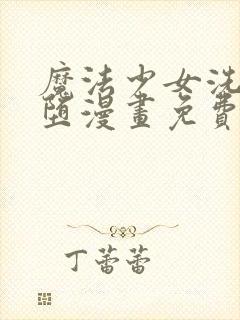 魔法少女洗
堕漫畫免費
丁蕾蕾